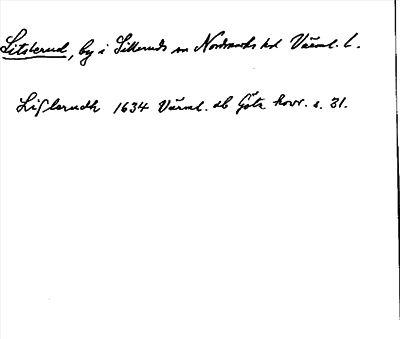 Litslerud, by i Silleruds sn Nordmarks hd Värml. l.
Liſlerudh 1634 Värml. db Göta hovr. s. 31.